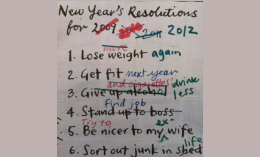 New Year's Resolutions
for 2009 2011 2012
more
1. Lose weight again
2. Get fit next year
and cigarettes! drink
3. Give up alcohol less
Find job
4. Stand up to boss
Try to ex-
5. Be nicer to my wife
life
6. Sort out junk in shed